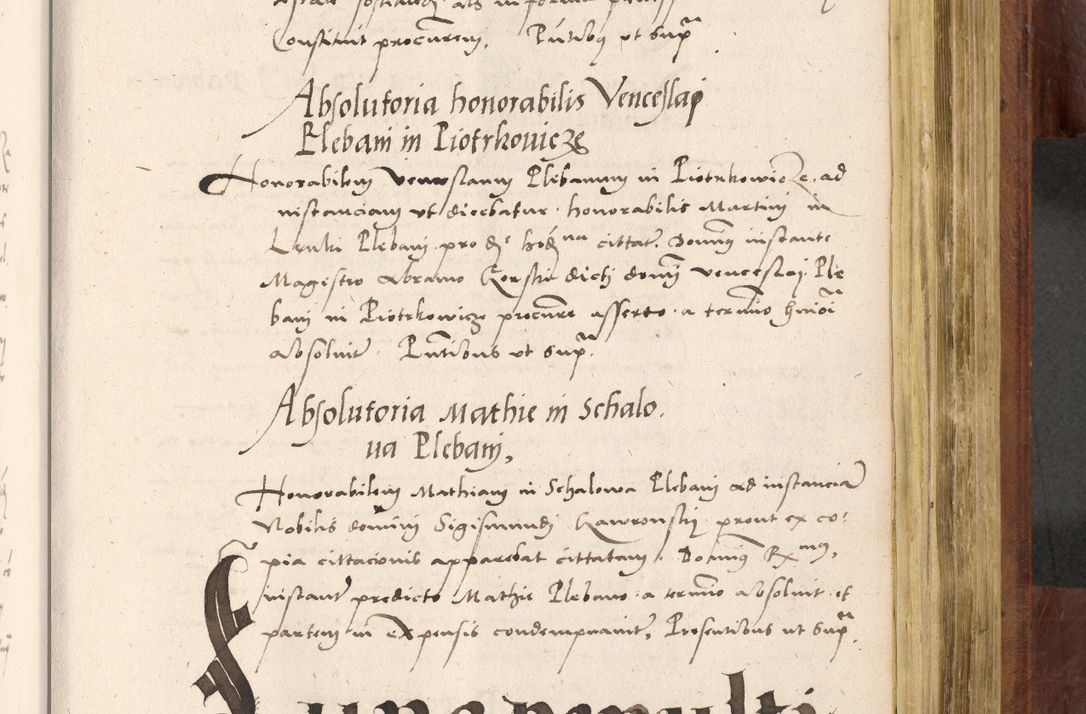 Constituit procurem. Pntibq ut sup
Absolutoria honorabilis Venceslai
Plebani in Piotrkovicze
Honorabilem Venceslaum Plebanum in Piotrkowicze ad
instanciam ut dicebatur honorabilis Martini in
Plebani pro cittat. Domnq instante
Magistro Abramo Gorski dicti domni Venceslai Ple
bani in Piotrkowicze procure asserto a termino hmoi
absolvit. Pntibus ut sup.
Absolutoria Mathie in Schalo
va Plebani,
Honorabilem Mathiam in Schalowa Plebani ad instancia
Nobilis domini Sigismundi Gawronski prout ex co
pia cittacionis apparebat cittatum. Domnq Rxmq,
instant predicto Mathie Plebano a termino absolvit et
partem in expensis condempnavit, Presentibus ut sup.